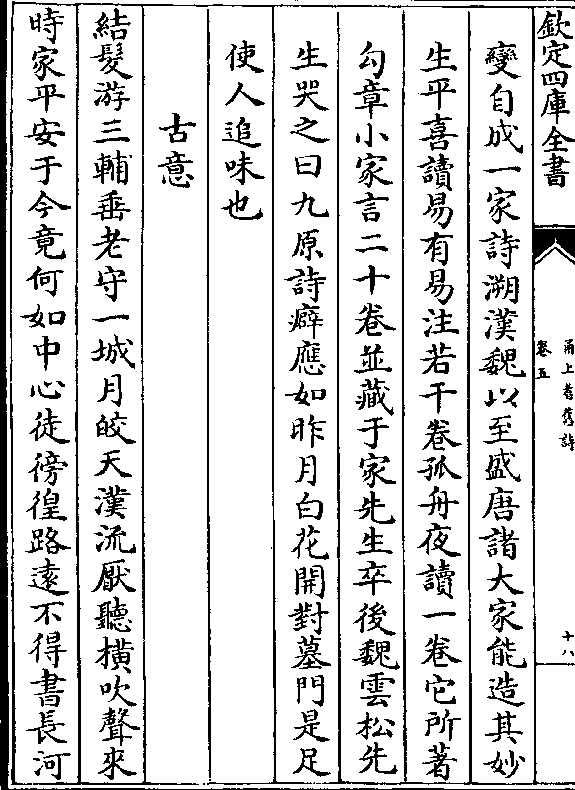 欽定四庫全書
甬上耆舊詩
卷五
十八
變自成一家詩溯漢魏以至盛唐諸大家能造其妙
生平喜讀易有易注若干卷孤舟夜讀一卷它所著
勾章小家言二十卷並藏于家先生卒後魏雲松先
生哭之曰九原詩癖應如昨月白花開對墓門是足
使人追味也
古意
結髮游三輔垂老守一城月皎天漢流厭聽橫吹聲來
時家平安于今竟何如中心徒徬徨路遠不得書長河